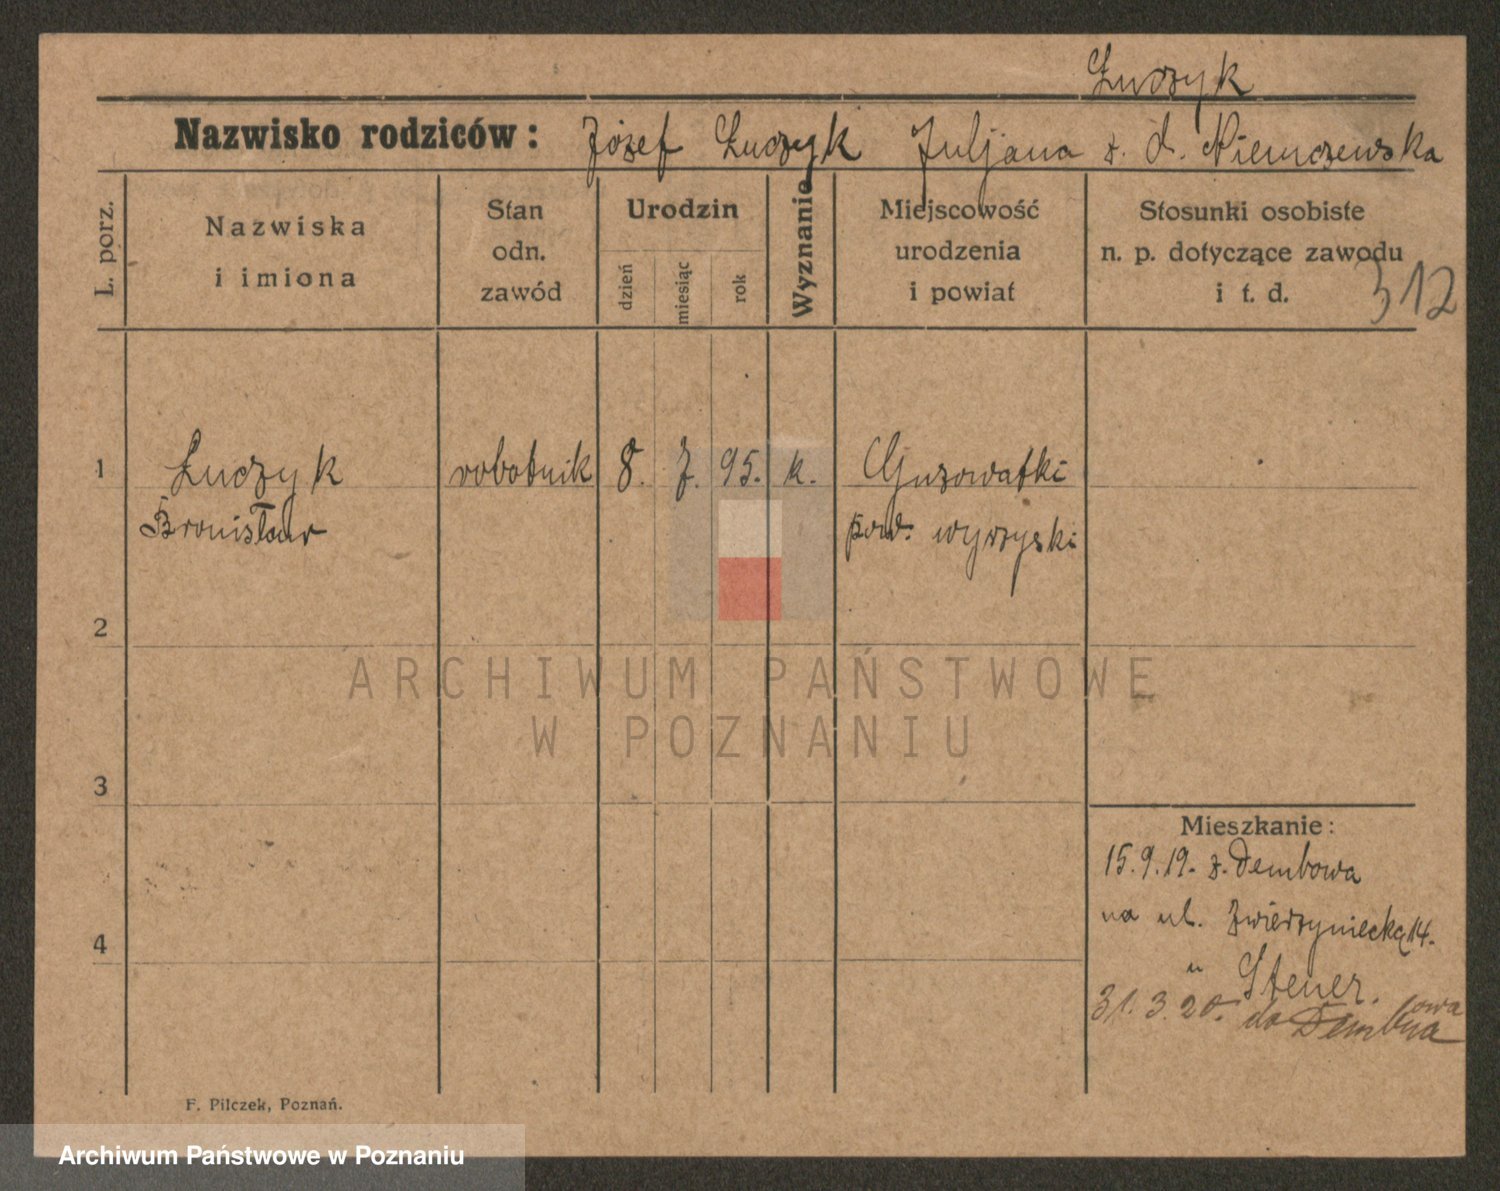 Łuczyk
Nazwisko rodziców: Józef Łuczyk Juljana z. d. Niemczewska
L. porz.
Nazwiska
i imiona
Stan
odn.
zawód
Urodzin
dzień
miesiąc
rok
Wyznanie
Miejscowość
urodzenia
i powiat
Stosunki osobiste
n. p. dotyczące zawodu
i t. d.
312
1 Łuczyk robotnik 8. 7. 95. k. Guzowatki
Bronisław pow. wyrzyski
2
3
4
ARCHIWUM PAŃSTWOWE
W POZNANIU
Mieszkanie:
15.9.19. z. Dembowa
na ul. Zwierzyniecką 14.
u Steuer.
31.3.20. do Dembowa
F. Pilczek, Poznań.
Archiwum Państwowe w Poznaniu